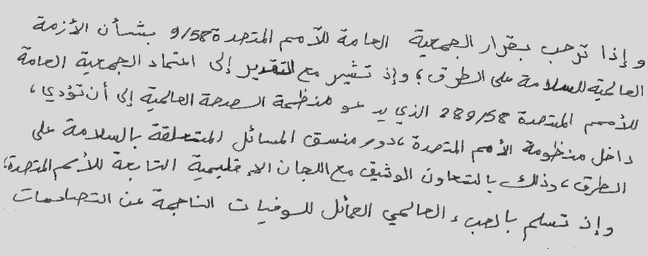 وإذا ترحب بقرار الجمعية العامة للأمم المتحدة 9/58 بشأن الأزمة
العالمية للسلامة على الطرق؛ وإذ تشير مع التقدير إلى اعتماد الجمعية العامة
للأمم المتحدة 289/58 الذي يدعو منظمة الصحة العالمية إلى أن تؤدي،
داخل منظومة الأمم المتحدة، دور منسق المسائل المتعلقة بالسلامة على
الطرق، وذلك بالتعاون الوثيق مع اللجان الإقليمية التابعة للأمم المتحدة؛
وإذ تسلم بالعبء العالمي الهائل للوفيات الناجمة عن التصادمات